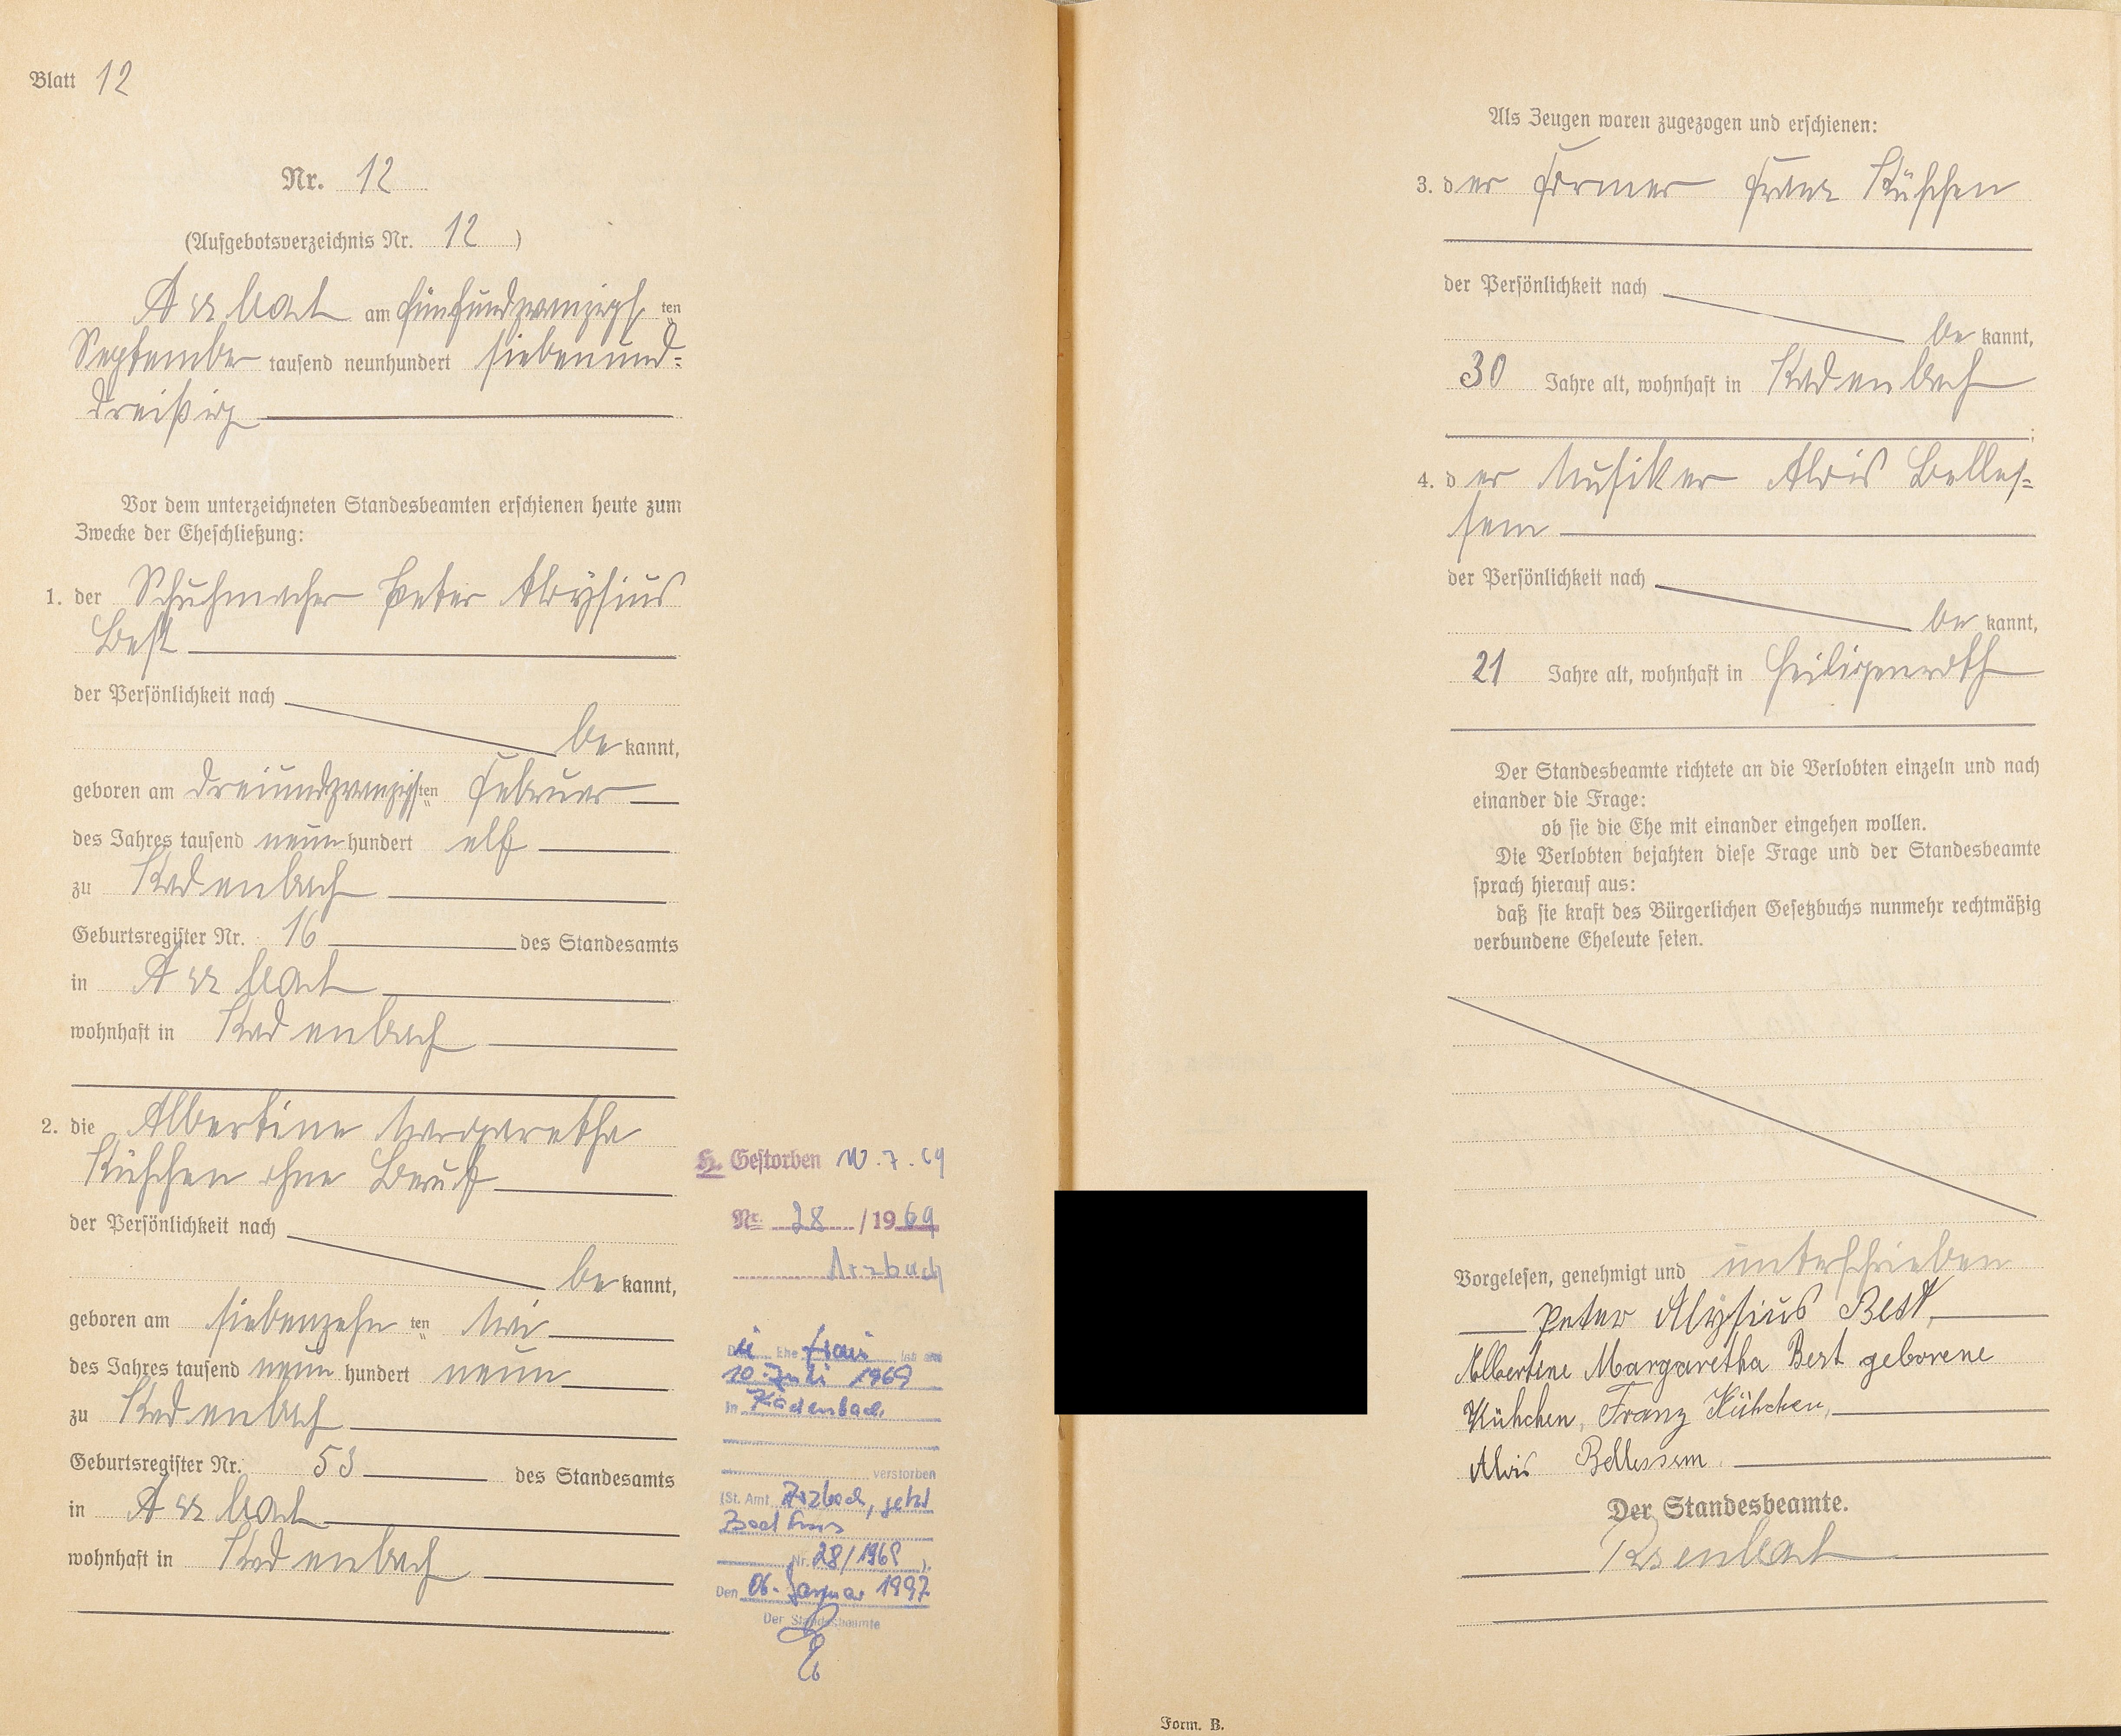 Blatt 12
Nr. 12
(Aufgebotsverzeichnis Nr. 12)
Arzbach am fünfundzwanzigsten
September tausend neunhundert siebenund-
dreißig
Vor dem unterzeichneten Standesbeamten erschienen heute zum
Zwecke der Eheschließung:
1. der Schuhmacher Peter Aloysius
Best
der Persönlichkeit nach
bekannt,
geboren am dreiundzwanzigsten Februar
des Jahres tausend neunhundert elf
zu Kadenbach
Geburtsregister Nr. 16 des Standesamts
in Arzbach
wohnhaft in Kadenbach
2. die Albertine Margaretha
Kühchen ohne Beruf
der Persönlichkeit nach
bekannt,
geboren am siebenzehnten Mai
des Jahres tausend neunhundert neun
zu Kadenbach
Geburtsregister Nr. 53 des Standesamts
in Arzbach
wohnhaft in Kadenbach
Gestorben 10.7.69
Nr. 28/1969
Arzbach
Die Ehefrau ist am
10. Juli 1969
in Kadenbach
verstorben
(St. Amt Arzbach, jetzt
Bad Ems
Nr. 28/1969).
Den 06. Januar 1997
Der Standesbeamte
Als Zeugen waren zugezogen und erschienen:
3. der Former Franz Kühchen
der Persönlichkeit nach
bekannt,
30 Jahre alt, wohnhaft in Kadenbach
;
4. der Musiker Alois Belles-
sem
der Persönlichkeit nach
bekannt,
21 Jahre alt, wohnhaft in Heiligenroth
Der Standesbeamte richtete an die Verlobten einzeln und nach
einander die Frage:
ob sie die Ehe mit einander eingehen wollen.
Die Verlobten bejahten diese Frage und der Standesbeamte
sprach hierauf aus:
daß sie kraft des Bürgerlichen Gesetzbuchs nunmehr rechtmäßig
verbundene Eheleute seien.
Vorgelesen, genehmigt und unterschrieben
Peter Aloysius Best,
Albertine Margaretha Best geborene
Kühchen, Franz Kühchen,
Alois Bellessem.
Der Standesbeamte.
Form. B.